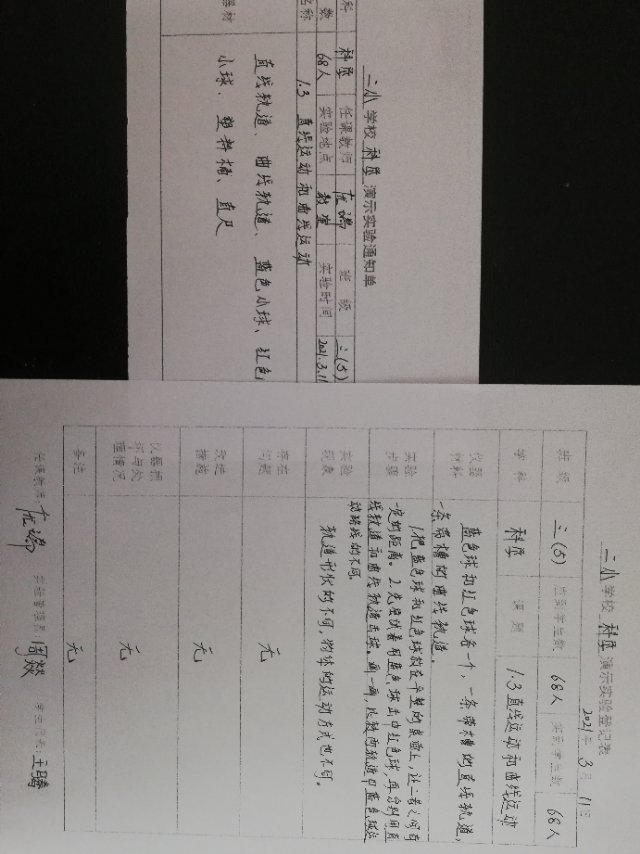 二小学校 科学 演示实验通知单
科 科学 任课教师 左鸿 班级 三(5)
数 68人 实验地点 教室 实验时间 2021.3.11
名称 1.3 直线运动和曲线运动
器材 直线轨道、曲线轨道、蓝色小球、红色
小球、塑料桶、直尺
二小学校 科学 演示实验登记表
2021年3月11日
班级 三(5) 应到学生数 68人 实到学生数 68人
学科 科学 课题 1.3直线运动和曲线运动
仪器材料 蓝色球和红色球各一个,一条带槽的直线轨道,
一条带槽的曲线轨道。
实验步骤 1.把蓝色球和红色球放在平整的桌面上,让二者之间有
一定的距离。2.先尝试着用蓝色球击中红色球,再分别用直
线轨道和曲线轨道击球。画一画,比较两轨道中蓝色球运
动路线的不同。
实验现象 轨道形状的不同,物体的运动方式也不同。
存在问题 无
改进措施 无
仪器损坏与处理情况 无
备注 无
任课教师: 实验管理员: 周燚 学生代表: 王腾